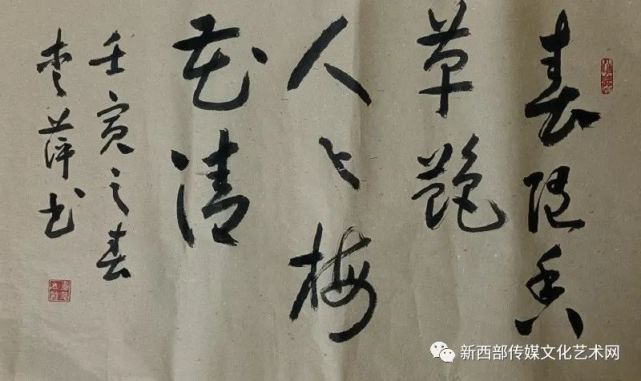 春随香
草艶
人与梅
花清
壬寅之春
李萍书
新西部传媒文化艺术网